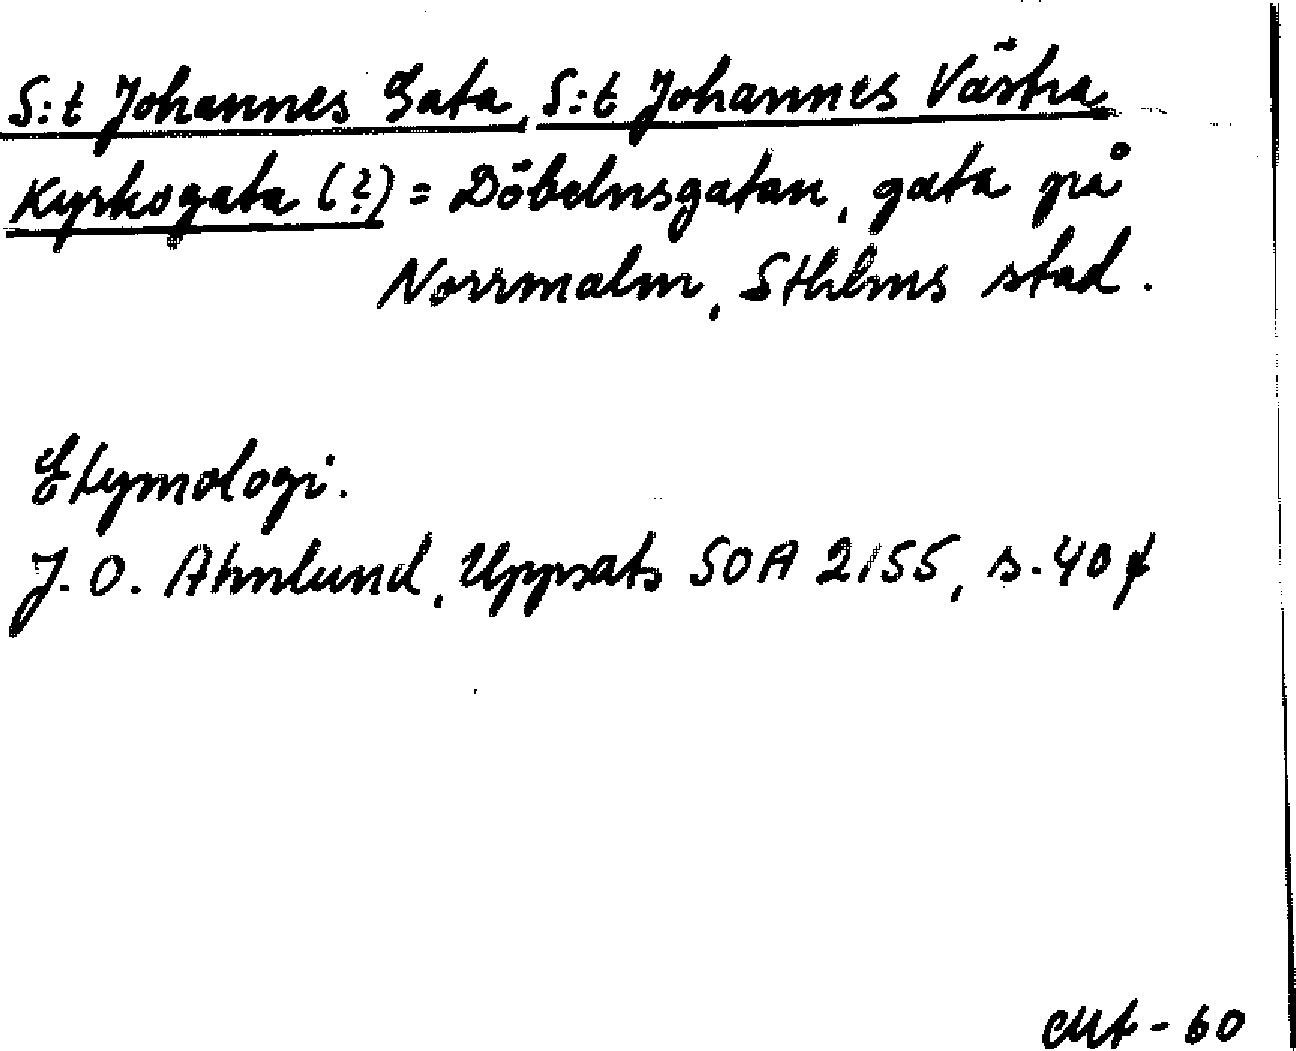 S:t Johannes Gata, S:t Johannes Västra
Kyrkogata (?) = Döbelnsgatan, gata på
Norrmalm, Sthlms stad.
Etymologi.
J. O. Ahnlund, Uppsats SOA 2155, s. 40 f
-60